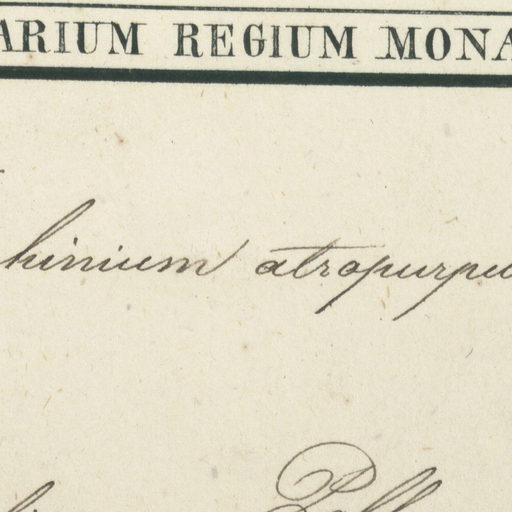 ARIUM REGIUM MONA
hinium atropurpu